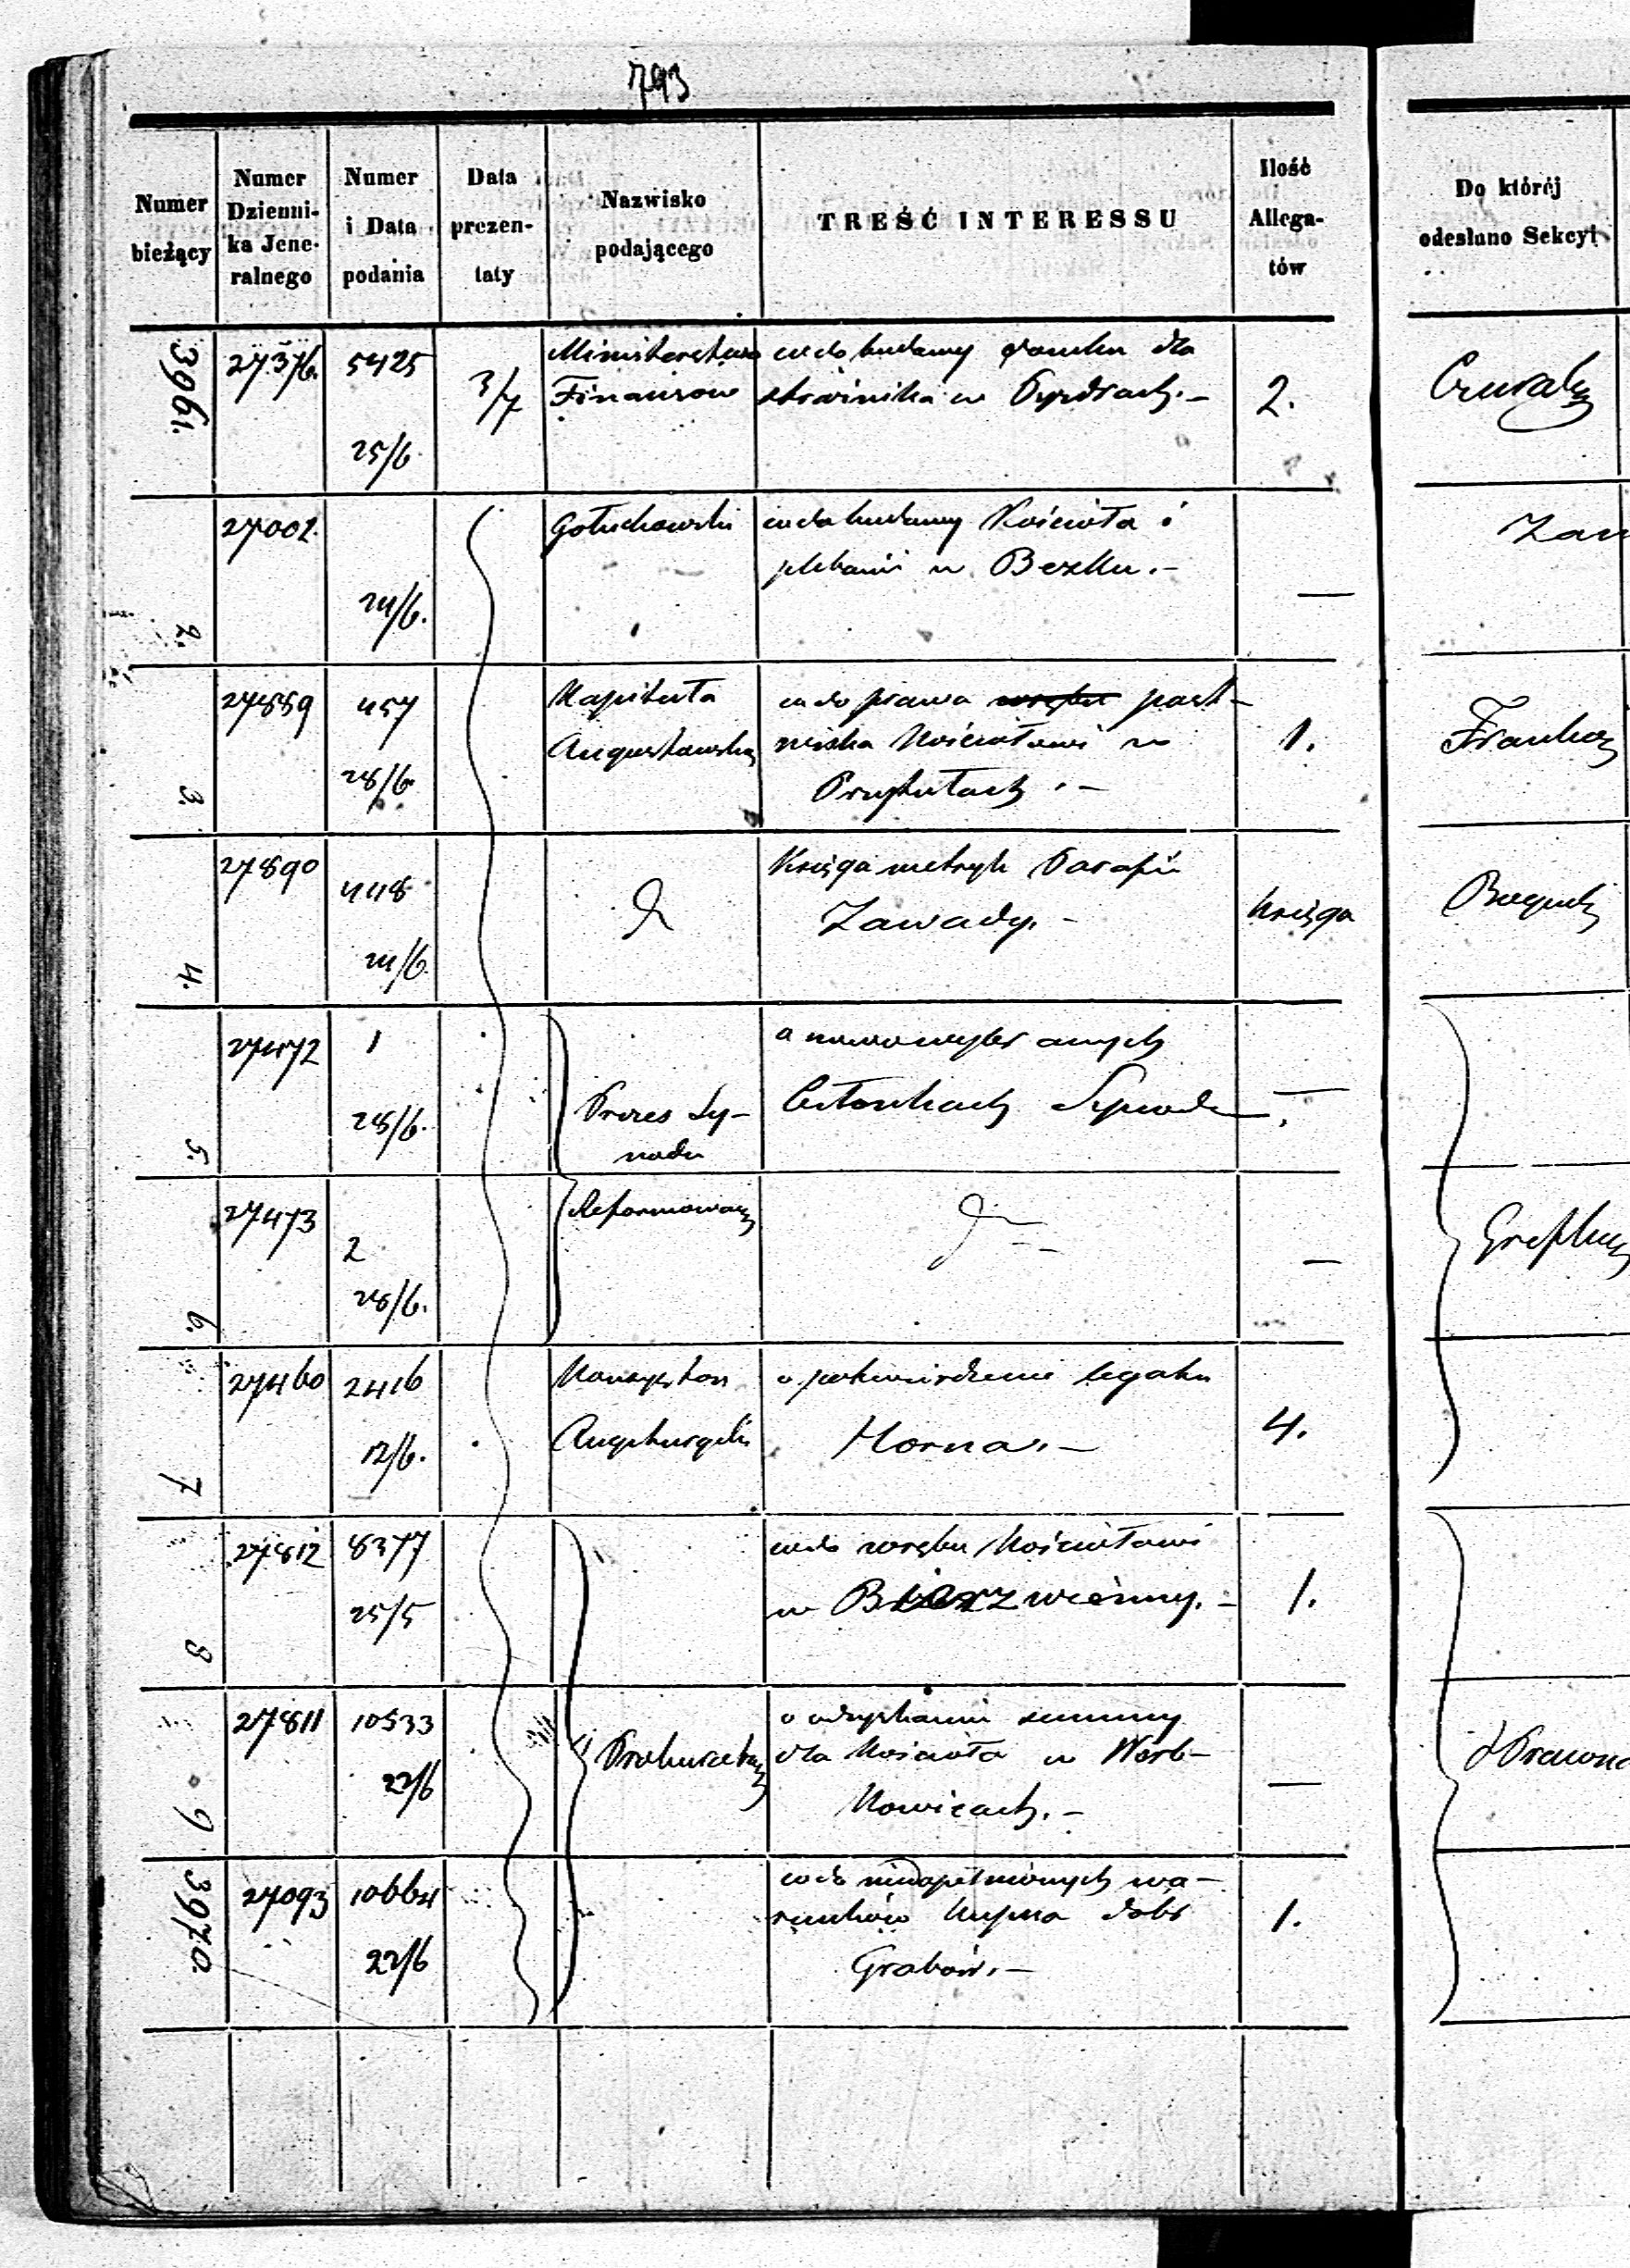 793
Numer bieżący
Numer Dzienni-ka Jene-ralnego
Numer i Data podania
Data prezen-taty
Nazwisko podającego
TREŚĆ INTERESSU
Ilość Allega-tów
Do któréj odesłano Sekcyi
3961. 27376. 5425 25/6. 3/7
Ministerstwo
Finansów
co do budowy domku dla
strażnika w Pyzdrach.–
2.
2. 27002. 24/6.
Gołuchowski
co do budowy Kościoła i
plebanii w Bezku.–
—
3. 27859 457 28/6.
Kapituła
Augustowska
co do prawa past-
wiska Kościołowi w
Przytułach.–
1.
4. 27890 448 24/6.
D
Księga metryk Parafii
Zawady.–
Księga
5. 27472 1 28/6.
Prezes Sy-
nodu
o nowowybranych
Członkach Synodu
—
6. 27473 2 28/6.
Reformowany
D
—
7 27460 2416 12/6.
Konsystorz
Augsburgski
o potwierdzenie legatu
Horna.–
4.
8 27812 8377 25/5
co do wrębu Kościołowi
w Bierzwienny.–
1.
9 27811 10533 22/6
Prokuratorya
o odzyskanie summy
dla Kościoła w Werb-
kowicach.–
—
3970. 27093 10664 22/6
co do niedopełnionych wa-
runków kupna dóbr
Grabów.–
1.